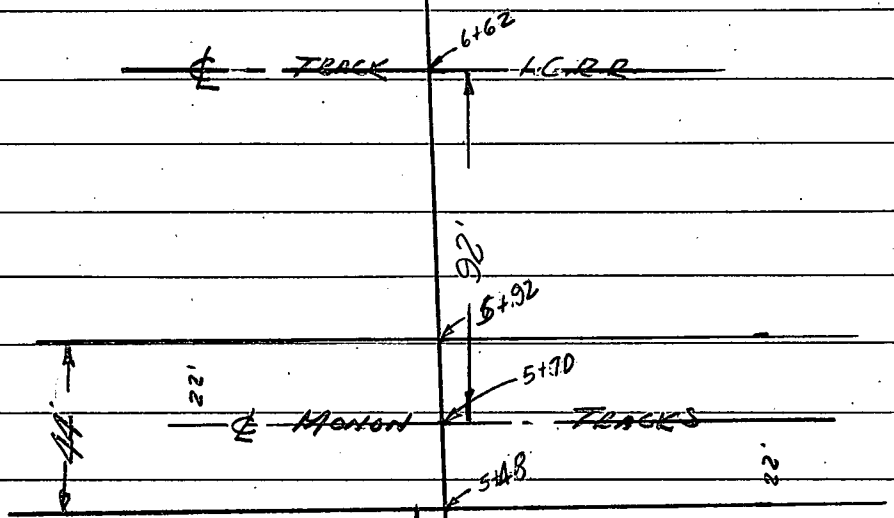 6+62
℄ TRACK I.C.R.R.
92'
5+92
22'
5+70
44'
℄ MONON TRACKS
22'
5+48